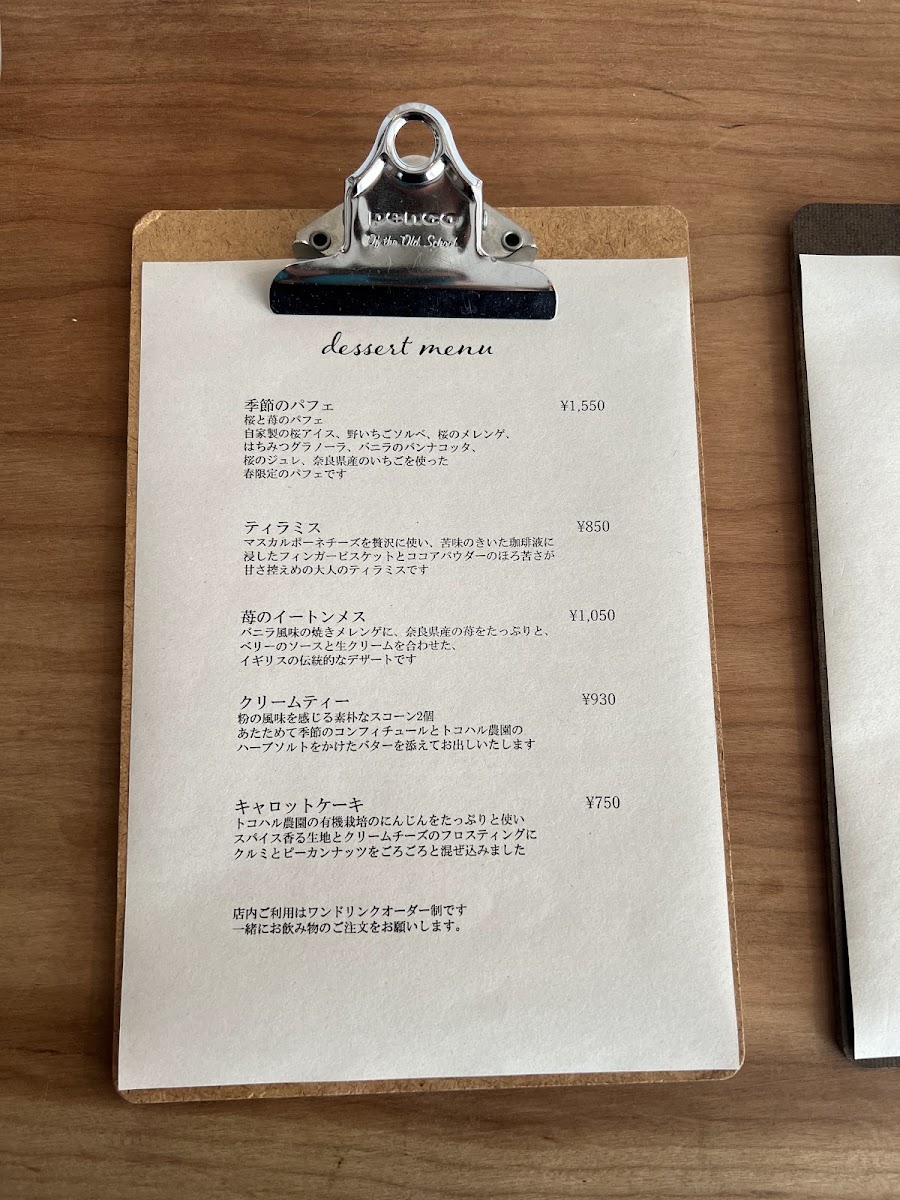 penco
Of the Old School
dessert menu
季節のパフェ ¥1,550
桜と苺のパフェ
自家製の桜アイス、野いちごソルベ、桜のメレンゲ、
はちみつグラノーラ、バニラのパンナコッタ、
桜のジュレ、奈良県産のいちごを使った
春限定のパフェです
ティラミス ¥850
マスカルポーネチーズを贅沢に使い、苦味のきいた珈琲液に
浸したフィンガービスケットとココアパウダーのほろ苦さが
甘さ控えめの大人のティラミスです
苺のイートンメス ¥1,050
バニラ風味の焼きメレンゲに、奈良県産の苺をたっぷりと、
ベリーのソースと生クリームを合わせた、
イギリスの伝統的なデザートです
クリームティー ¥930
粉の風味を感じる素朴なスコーン2個
あたためて季節のコンフィチュールとトコハル農園の
ハーブソルトをかけたバターを添えてお出しいたします
キャロットケーキ ¥750
トコハル農園の有機栽培のにんじんをたっぷりと使い
スパイス香る生地とクリームチーズのフロスティングに
クルミとピーカンナッツをごろごろと混ぜ込みました
店内ご利用はワンドリンクオーダー制です
一緒にお飲み物のご注文をお願いします。